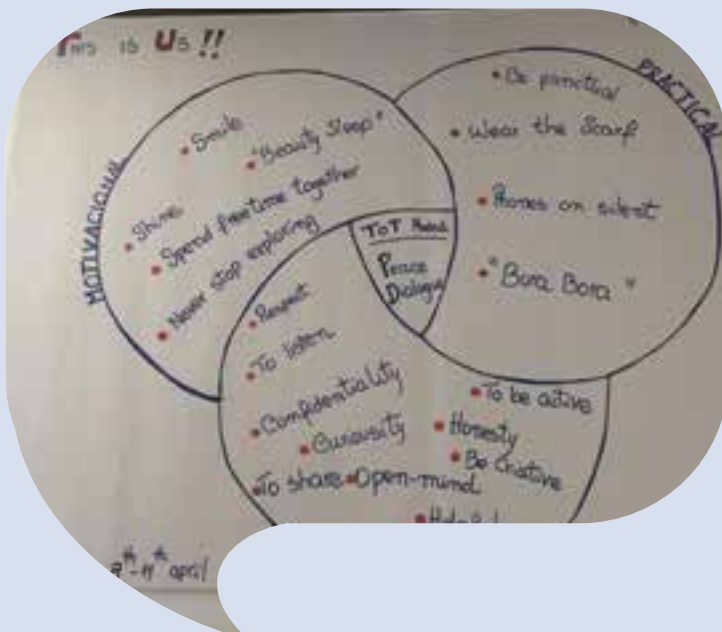 This is Us!!
MOTIVACIONAL
• Smile
• "Beauty Sleep"
• Shine
• Spend free time together
• Never stop exploring
PRACTICAL
• Be punctual
• Wear the Scarf
• Phones on silent
• "Bora Bora"
ToT
Peace
Dialogue
• Respect
• To listen
• Confidentiality
• Curausity
• To share
• Open-mind
• To be active
• Honesty
• Be Criative
april